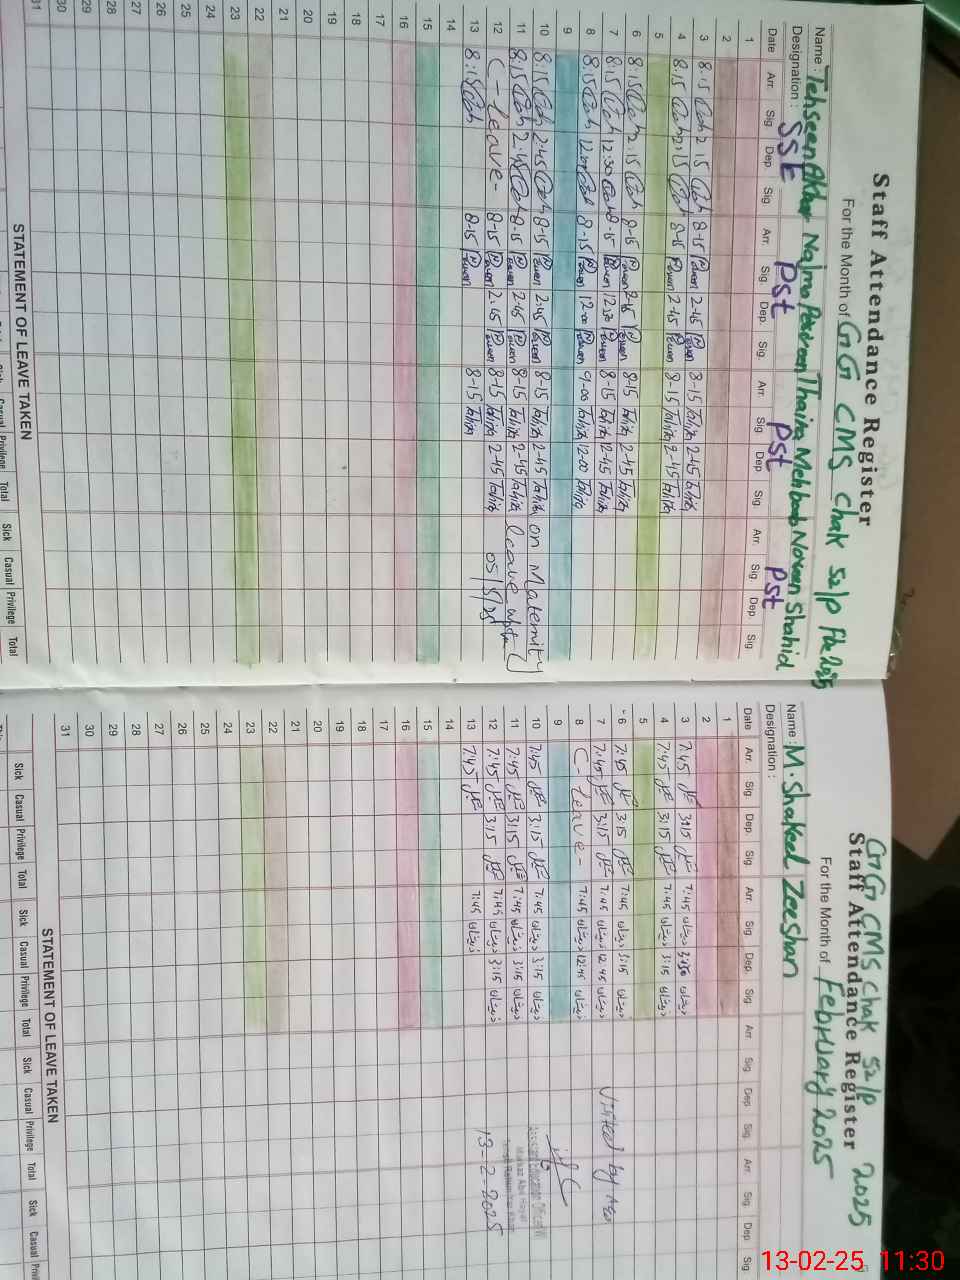 Staff Attendance Register
For the Month of GG CMS Chak 52/P Feb 2025
Name : Tehseen Akhtar Najma Parveen Thaira Mehboob Noreen Shahid
Designation : SSE Pst Pst Pst
Date Arr. Sig. Dep. Sig. Arr. Sig. Dep. Sig. Arr. Sig. Dep. Sig. Arr. Sig. Dep. Sig.
1
2
3 8:15 2:15 8-15 2-45 8-15 Tahira 2-45 Tahira
4 8:15 2:15 8-15 2-45 8-15 Tahira 2-45 Tahira
5
6 8:15 2:15 8-15 8-15 Tahira 2-45 Tahira
7 8:15 12:30 8-15 12:30 8-15 Tahira 2-45 Tahira
8 8:15 8-15 12-00 9-00 Tahira 12-00 Tahira
9
10 8:15 2:45 8-15 2:45 8-15 Tahira 2-45 Tahira on Maternity
11 8:15 2:45 8-15 2-45 8-15 Tahira 2-45 Tahira leave
12 C-leave- 8-15 2:45 8-15 Tahira 2-45 Tahira
13 8:15 8-15 8-15 Tahira
14
15
16
17
18
19
20
21
22
23
24
25
26
27
28
29
30
31
STATEMENT OF LEAVE TAKEN
Casual Privilege Total Sick Casual Privilege Total
GG CMS Chak 52/P 2025
Staff Attendance Register
For the Month of February 2025
Name : M. Shakeel Zeeshan
Designation :
Date Arr. Sig. Dep. Sig. Arr. Sig. Dep. Sig. Arr. Sig. Dep. Sig. Arr. Sig. Dep. Sig.
1
2
3 7:45 3:15 7:45 ذیشان ذیشان
4 7:45 3:15 7:45 ذیشان 3:15 ذیشان
5
6 7:45 3:15 7:45 ذیشان 3:15 ذیشان
7 7:45 3:15 7:45 ذیشان 12:45 ذیشان Visited by AEO
8 C-leave- 7:45 ذیشان 12:45 ذیشان
9
10 7:45 3:15 7:45 ذیشان 3:15 ذیشان Assistant Education Officer
11 7:45 3:15 7:45 ذیشان 3:15 ذیشان
12 7:45 3:15 7:45 ذیشان 3:15 ذیشان 13-2-2025
13 7:45 7:45 ذیشان
14
15
16
17
18
19
20
21
22
23
24
25
26
27
28
29
30
31
STATEMENT OF LEAVE TAKEN
Sick Casual Privilege Total Sick Casual Privilege Total Sick Casual Privilege Total Sick Casual
13-02-25 11:30